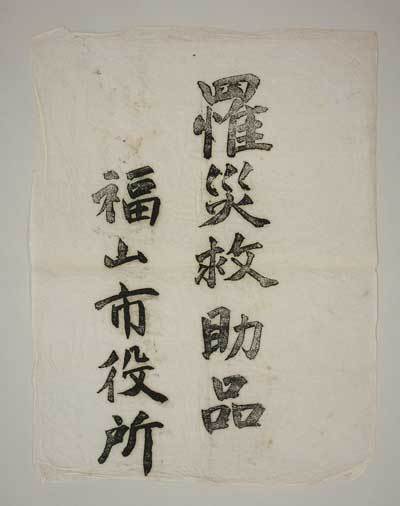 罹災救助品
福山市役所